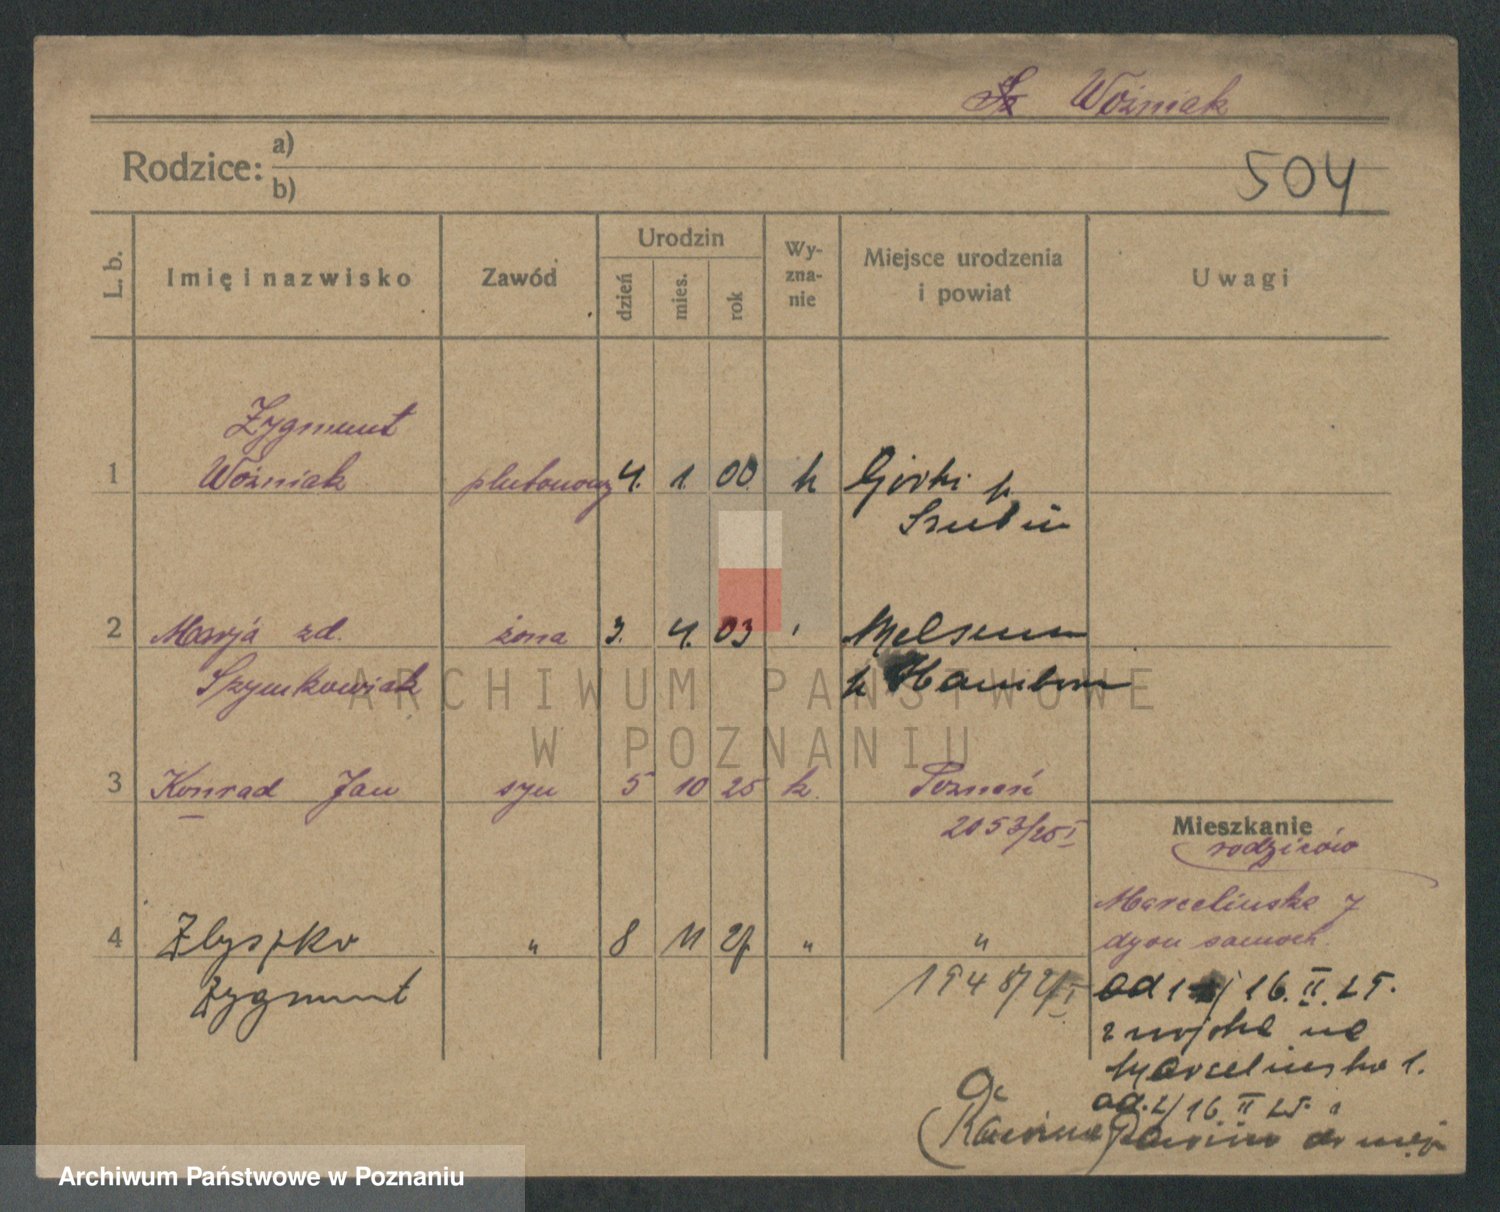 Woźniak
Rodzice: a)
b)
504
L. b.
Imię i nazwisko
Zawód
Urodzin
dzień
mies.
rok
Wy-
zna-
nie
Miejsce urodzenia
i powiat
Uwagi
Zygmunt
1 Woźniak plutonowy 4. 1. 00 k Górki p
Szubin
2 Marja zd. żona 3. 4. 03
Szymkowiak
ARCHIWUM PAŃSTWOWE
W POZNANIU
3 Konrad Jan syn 5 10 25 k Poznań
2053/25 I
Mieszkanie
rodziców
Marcelińska 7
dyon samoch.
4 Zbyszko " 8 11 " "
Zygmunt
16. II. 25.
z wojska na
Marcelińska 1.
od 2/ 16 II 25.
Archiwum Państwowe w Poznaniu